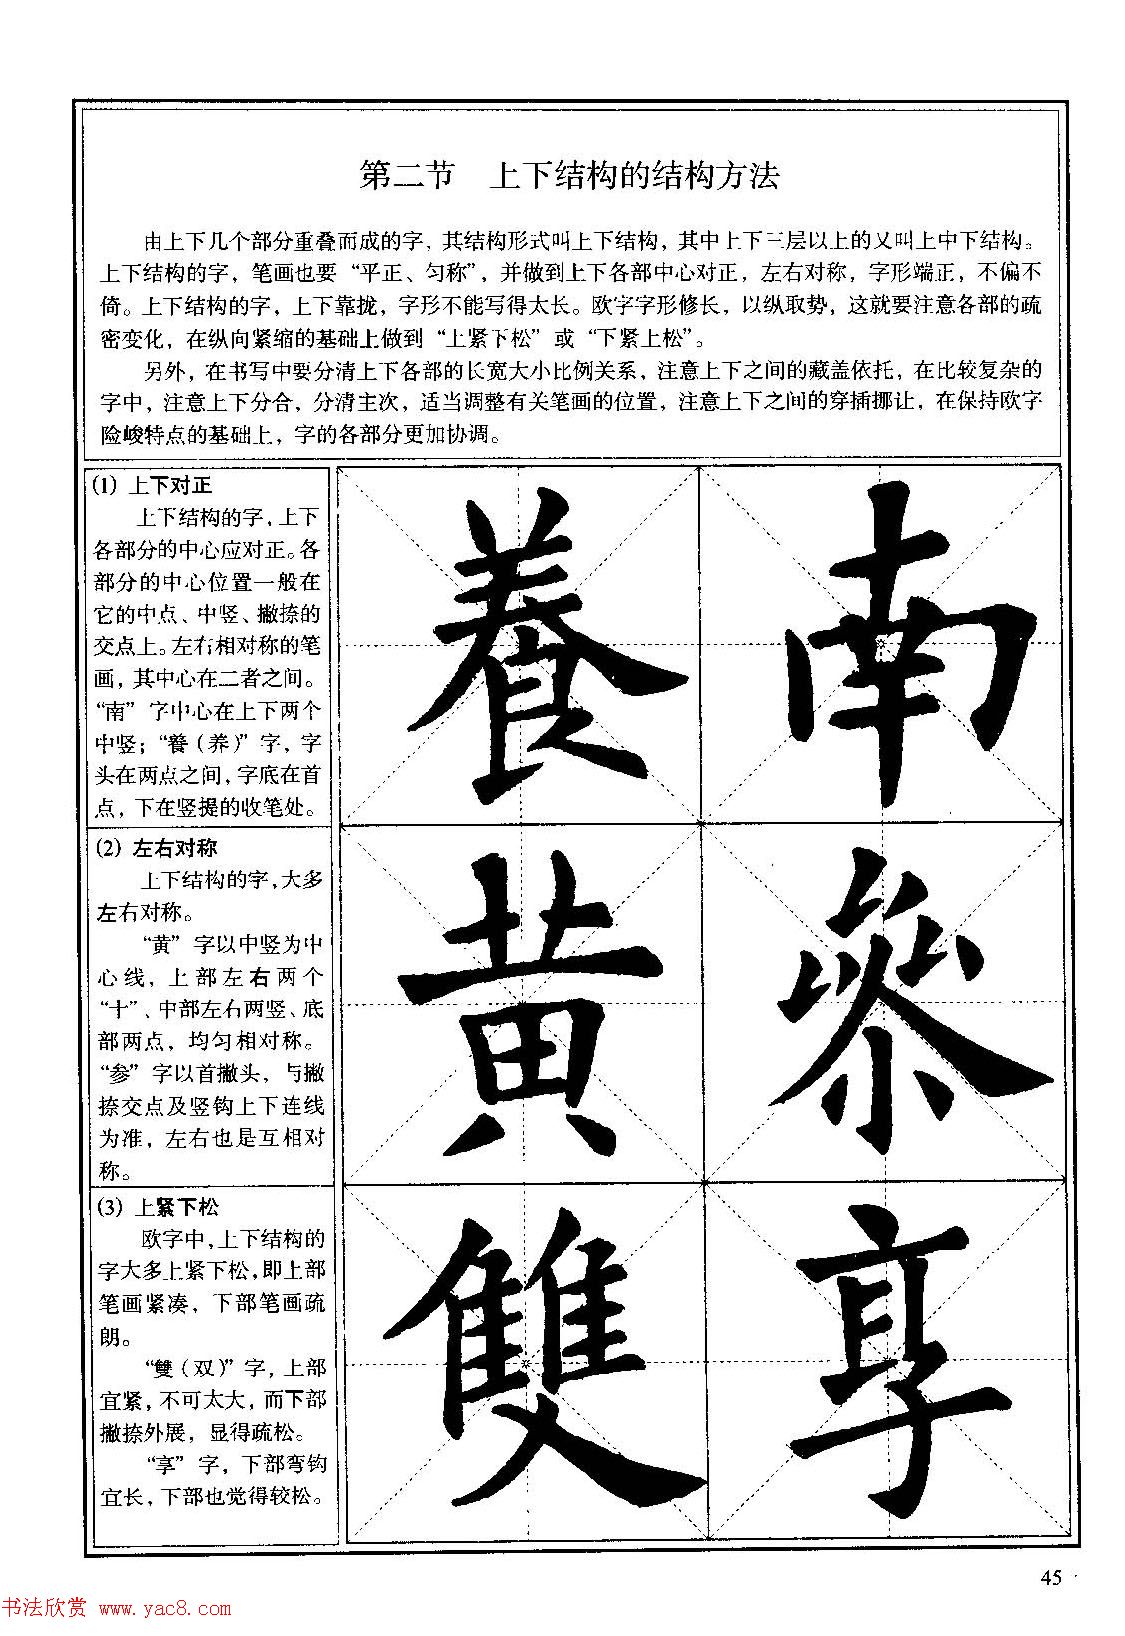 第二节　上下结构的结构方法
由上下几个部分重叠而成的字，其结构形式叫上下结构，其中上下三层以上的又叫上中下结构。
上下结构的字，笔画也要“平正、匀称”，并做到上下各部中心对正，左右对称，字形端正，不偏不
倚。上下结构的字，上下靠拢，字形不能写得太长。欧字字形修长，以纵取势，这就要注意各部的疏
密变化，在纵向紧缩的基础上做到“上紧下松”或“下紧上松”。
另外，在书写中要分清上下各部的长宽大小比例关系，注意上下之间的藏盖依托，在比较复杂的
字中，注意上下分合，分清主次，适当调整有关笔画的位置，注意上下之间的穿插挪让，在保持欧字
险峻特点的基础上，字的各部分更加协调。
(1) 上下对正
上下结构的字，上下
各部分的中心应对正。各
部分的中心位置一般在
它的中点、中竖、撇捺的
交点上。左右相对称的笔
画，其中心在二者之间。
“南”字中心在上下两个
中竖；“養（养）”字，字
头在两点之间，字底在首
点，下在竖提的收笔处。
養 南
(2) 左右对称
上下结构的字，大多
左右对称。
“黄”字以中竖为中
心线，上部左右两个
“十”、中部左右两竖、底
部两点，均匀相对称。
“参”字以首撇头，与撇
捺交点及竖钩上下连线
为准，左右也是互相对
称。
黄 参
(3) 上紧下松
欧字中，上下结构的
字大多上紧下松，即上部
笔画紧凑，下部笔画疏
朗。
“雙（双）”字，上部
宜紧，不可太大，而下部
撇捺外展，显得疏松。
“享”字，下部弯钩
宜长，下部也觉得较松。
雙 享
45
书法欣赏 www.yac8.com